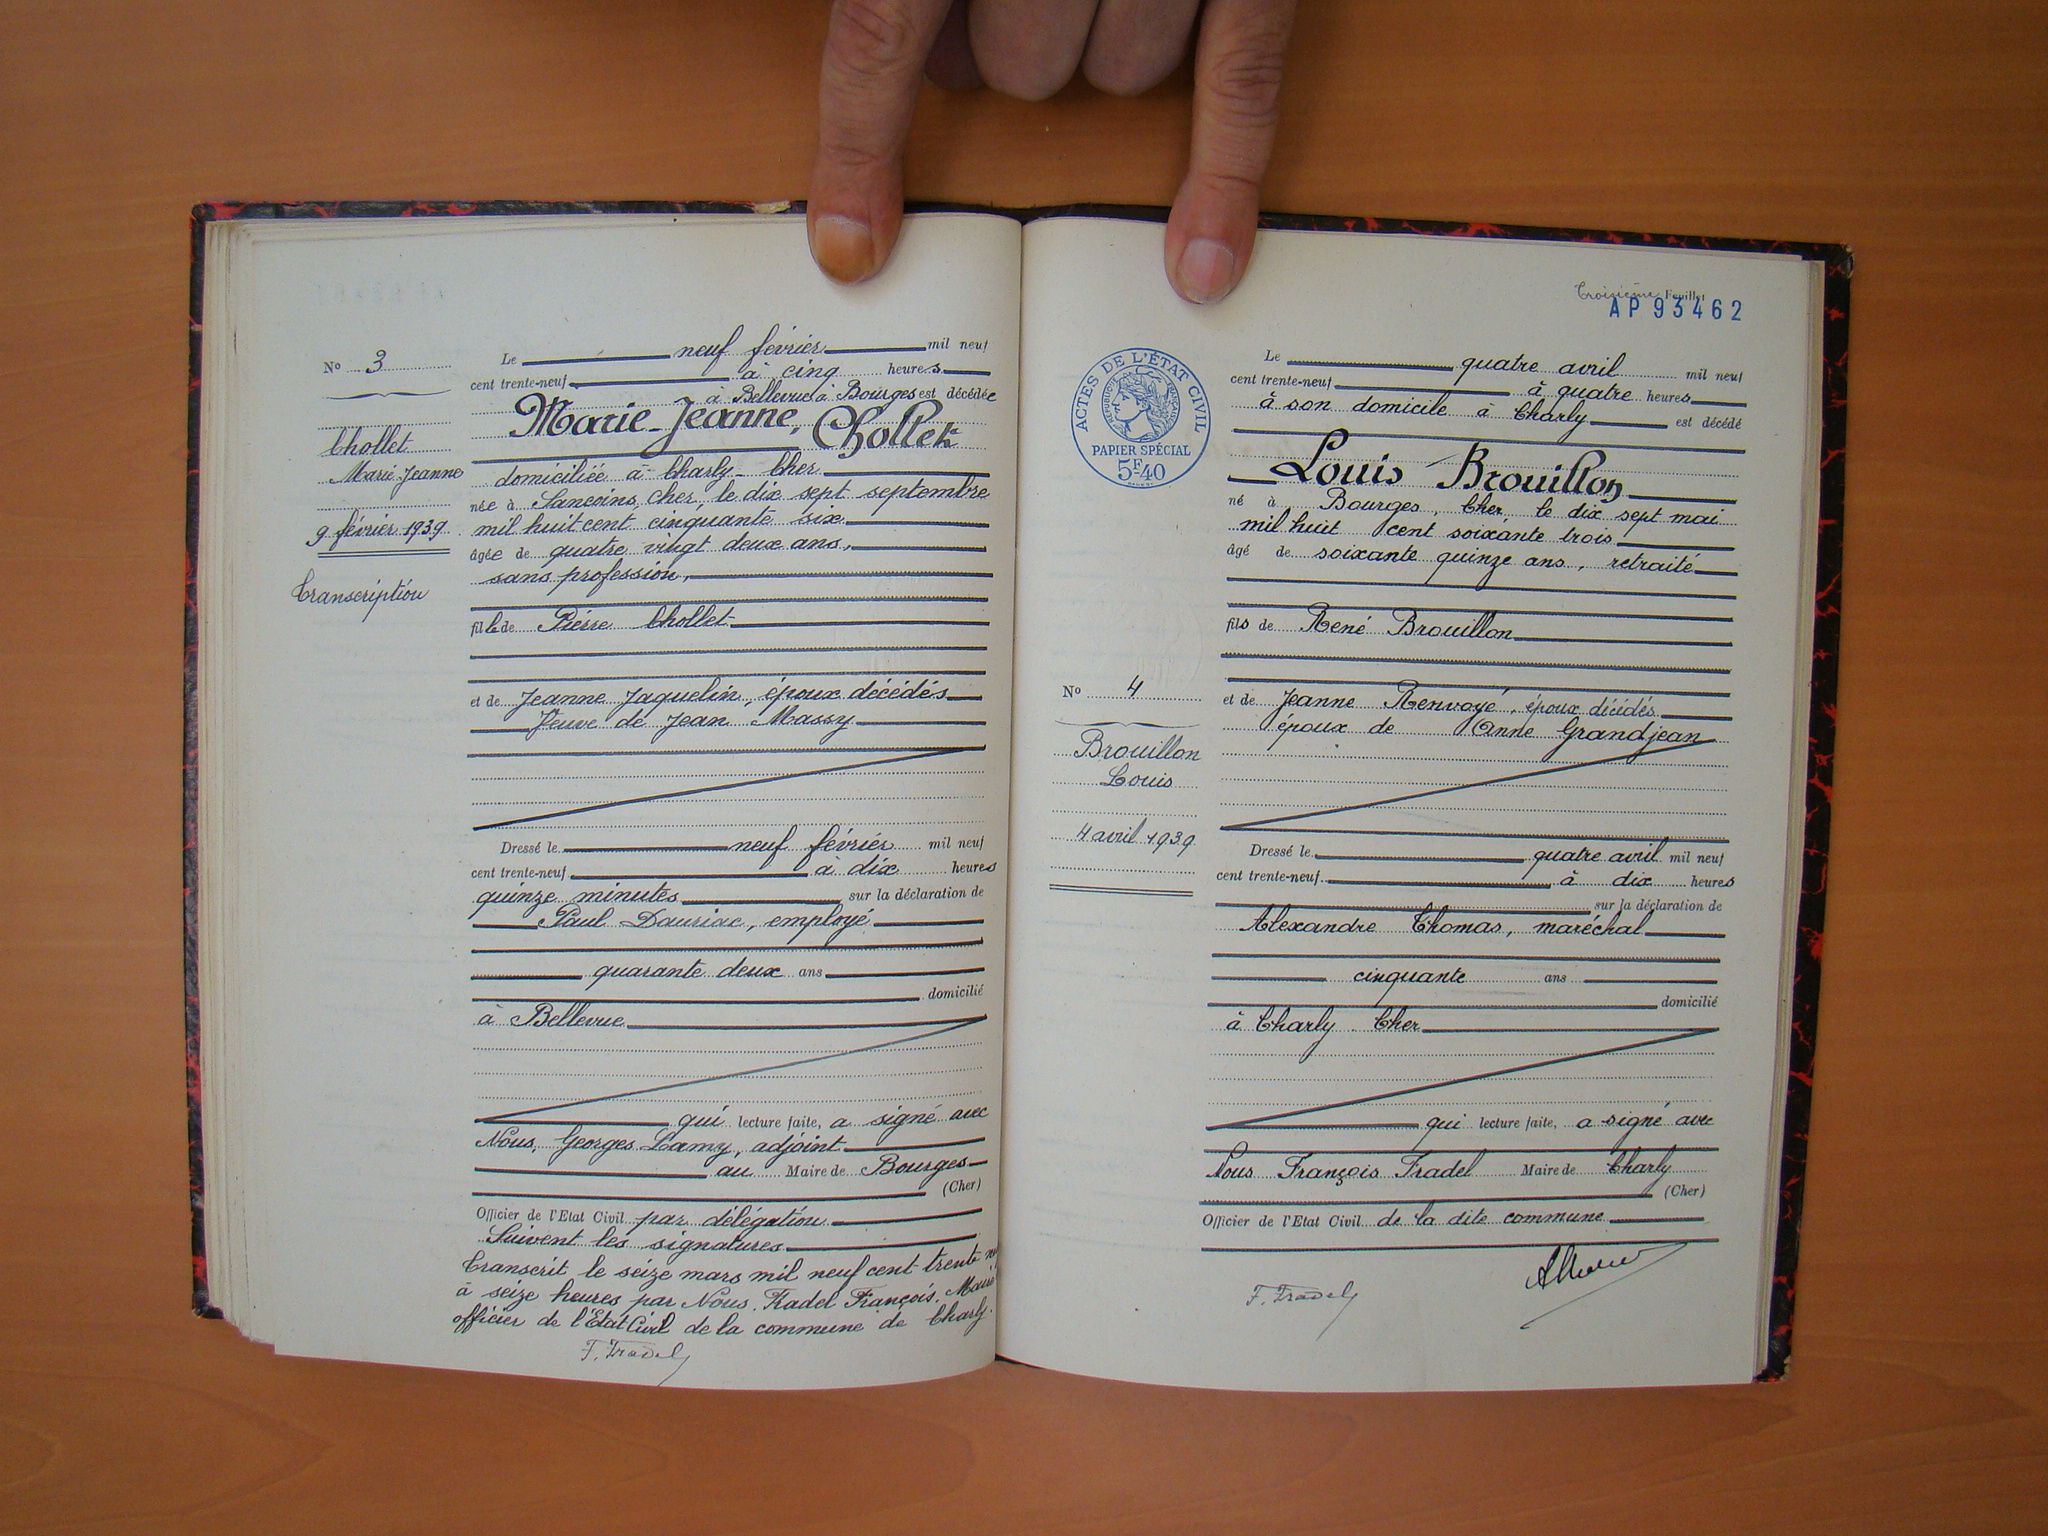 No 3
Chollet
Marie-Jeanne
9 février 1939
Transcription
Le neuf février mil neuf
cent trente-neuf à cinq heures
à Bellevue à Bourges est décédée
Marie-Jeanne, Chollet
domiciliée à Charly Cher
née à Sancoins, Cher, le dix sept septembre
mil huit cent cinquante six
âgée de quatre vingt deux ans,
sans profession,
fille de Pierre Chollet
et de Jeanne Jaquelin, époux décédés
Veuve de Jean Massy
Dressé le neuf février mil neuf
cent trente-neuf à dix heures
quinze minutes sur la déclaration de
Paul Dauriac, employé
quarante deux ans
domicilié
à Bellevue
qui lecture faite, a signé avec
Nous, Georges Lamy, adjoint
au Maire de Bourges
(Cher)
Officier de l'Etat Civil par délégation
Suivent les signatures
Transcrit le seize mars mil neuf cent trente
à seize heures par Nous, Fradel François, Maire
officier de l'Etat Civil de la commune de Charly.
F. Fradel
Troisième Feuillet
AP 93462
ACTES DE L'ÉTAT CIVIL
RÉPUBLIQUE FRANÇAISE
PAPIER SPÉCIAL
5F40
No 4
Brouillon
Louis
4 avril 1939
Le quatre avril mil neuf
cent trente-neuf à quatre heures
à son domicile à Charly est décédé
Louis Brouillon
né à Bourges, Cher, le dix sept mai
mil huit cent soixante trois
âgé de soixante quinze ans, retraité
fils de René Brouillon
et de Jeanne Renvoyé, époux décédés
époux de Anne Grandjean
Dressé le quatre avril mil neuf
cent trente-neuf à dix heures
sur la déclaration de
Alexandre Thomas, maréchal
cinquante ans
domicilié
à Charly Cher
qui lecture faite, a signé avec
Nous François Fradel Maire de Charly
(Cher)
Officier de l'Etat Civil de la dite commune
F. Fradel